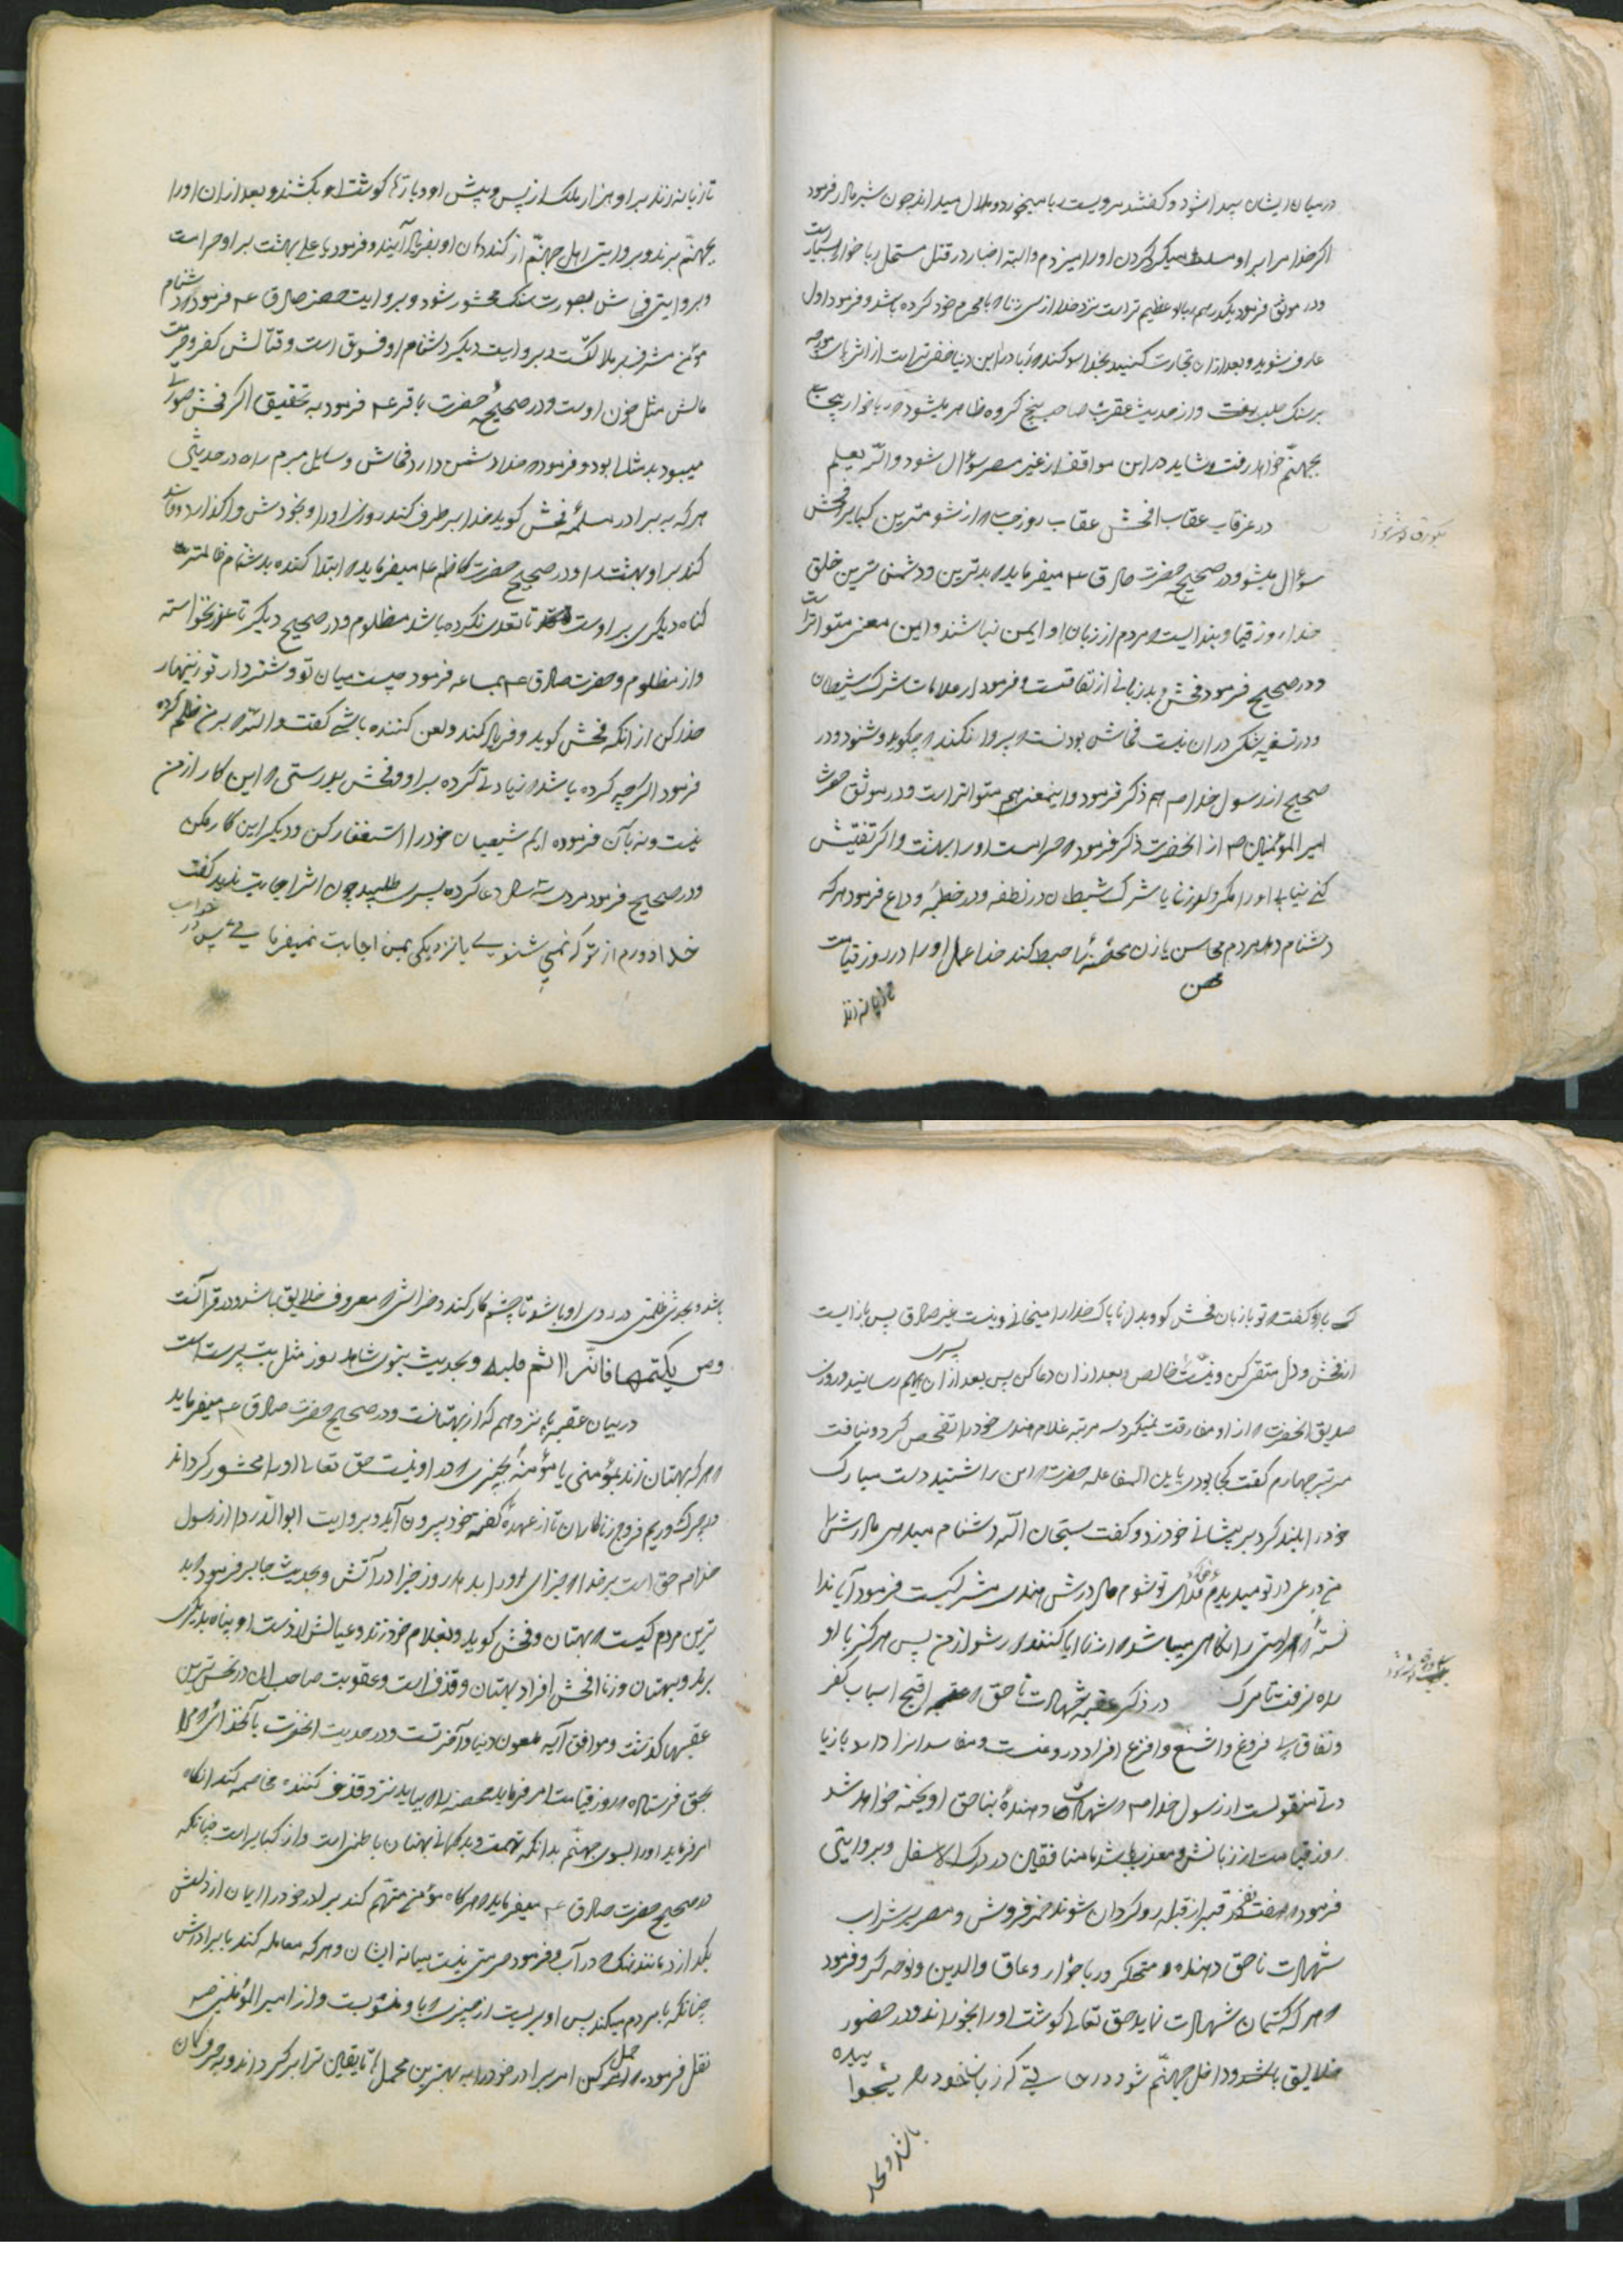 در میان ایشان پیدا شود و گفتند مرویست ربا میخورد و حلال میداند چون شیر مادر فرمود
اگر خدا مرا بر او مسلط میکرد گردن او را میزدم و البته اخبار در قتل مستحل ربا خوار بسیار است
و در موثق فرمود یکدرهم ربا عظیم تر است نزد خدا از سی زنا که با محرم خود کرده باشد و فرمود اول
عارف شوید و بعد از ان تجارت کنید بخدا سوکند که ربا در این دنیا خفی تر است از اثر پای مورچه
بر سنک صلب و از حدیث عقرب صاحب پنج کروه ظاهر میشود که ربا خوار
بجهنّم خواهد رفت و شاید در این مواقف از غیر مصر سؤال شود و اللّه یعلم
در عرقاب عقاب افحش عقاب روز حساب که از شومترین کبایر و فحش
سؤال میشود و در صحیح حضرت صادق ع میفرماید که بدترین و دشمن ترین خلق
خدا روز قیامت بنده ایست که مردم از زبان او ایمن نباشند و این معنی متواتر است
و در صحیح فرمود فحش و بد زبانی از نفاقست و فرمود از علامات شرک شیطان
که در آن شکی نیست فحاش بودنست که پروا نکند که چه کوید و شنود و در
صحیح از رسول خدا ص هم ذکر فرمود و این معنی هم متواتر است و در موثق حضرت
امیر المؤمنین ع از آنحضرت ذکر فرمود که حرامست او را بهشت و اکر تفتیش
کنی نیابی او را مکر ولد زنا یا شرک شیطان در نطفه و در خطبهٔ وداع فرمود هر که
دشنام دهد مردم محاسن یا زن محصنهٔ را حبط کند خدا عمل او را در روز قیامت
محصن
تازیانه زند
تازیانه زند بر او هزار ملک از پس و پیش او و مارها کوشت او بکشند و بعد از ان او را
بجهنّم برند و بروایتی اهل جهنّم از کند دهان او بفریاد آیند و فرمود یا علی بهشت بر او حرامست
و بروایتی فحاش بصورت سک محشور شود و بروایت حضرت صادق ع فرمود که دشنام
مؤمن مشرف بر هلاکتست و بروایت دیکر دشنام او فسوق است و قتالش کفر و حرمت
مالش مثل خون اوست و در صحیح حضرت باقر ع فرمود به تحقیق اکر فحش صورتی
میبود بد مثالی بود و فرمود که خدا دشمن دارد فحاش و سایل مبرم را و در حدیثی
هر که به برادر مسلم فحش کوید خدا برطرف کند روزی او را و بخودش واکذارد و فاسد
کند بر او بهشت را و در صحیح حضرت کاظم ع میفرماید که ابتدا کننده بدشنام ظالمتر است
کناه دیکری بر اوست تا تعدی نکرده باشد مظلوم و در صحیح دیکر تا عذر نخواسته
از مظلوم و حضرت صادق ع بسماعه فرمود چیست میان تو و شتردار تو زینهار
حذر کن از آنکه فحش کوید و فریاد کند و لعن کننده باشی کفت و اللّه که بر من ظلم کرده
فرمود اکر چه کرده باشد که زیادتی کرده بر او و فحش بدرستی که این کار از من
نیست و نه بآن فرموده ایم شیعیان خود را استغفار کن و دیکر این کار مکن
و در صحیح فرمود مردی سه سال دعا کرده پسری طلبید چون اثر اجابت ندید کفت
خدا دورم از تو که نمی شنوی یا نزدیکی بمن اجابت نمیفرمایی پس در خواب
کسی باو کفت که تو با زبان فحش کو و بدل ناپاک خدا را میخوانی و نیت غیر صادق پس باز ایست
از فحش و دل متقی کن و نیت خالص و بعد از ان دعا کن پس بعد از ان پسری بهم رسانید و روزی
صدیق آنحضرت که از او مفارقت نمیکرد سه مرتبه غلام هندی خود را تفحص کرد و نیافت
مرتبهٔ چهارم کفت کجا بودی یا بن الفاعله حضرت که این را شنید دست مبارک
خود را بلند کرد بر پیشانی خود زد و کفت سبحان اللّه دشنام میدهی مادرش را
من ورعی در تو میدیدم کفت فدای تو شوم مادرش هندی مشرکیست فرمود آیا ندا
نستهٔ که هر امتی را نکاحی میباشد که از زنا ابا کنند دور شو از من پس هرگز با او
راه نرفت تا مرک در ذکر عقبه شهادت ناحق که اقبح اسباب کفر
و نفاق بی فروغ و اشنع و افزع افراد دروغست و مفاسد را دارد با زیا
دتی منقولست از رسول خدا ص که شهادت دهندهٔ بناحق اویخته خواهد شد
روز قیامت از زبانش و معذب باشد با منافقین در درک الاسفل و بروایتی
فرمود که هفت نفر در قبر از قبله روکردان شوند خمر فروش و مصر بر شراب
شهادت ناحق دهنده و محتکر و ربا خوار و عاق والدین و نوحه کر و فرمود
که هر که کتمان شهادت نماید حق تعالی کوشت او را بخوراند در حضور
خلایق باو و داخل جهنّم شود در حالتی که زبان خود را میجوا
یده
باشد و بحد
باشد و بحدیثی ظلمتی در روی او باشد تا چشم کار کند و خراشی که معروف خلایق باشد و در قرآنست
و من یکتمها فانّه اثم قلبه و بحدیث نبوی شاهد زور مثل بت پرست است
در بیان عقبهٔ پانزدهم که از بهتانست و در صحیح حضرت صادق ع میفرماید
که هر که بهتان زند بمؤمنی یا مؤمنهٔ بچیزی که در او نیست حق تعالی او را محشور کرداند
در چرک و ریم فروج زناکاران تا از عهدهٔ کفته خود بیرون آید و بروایت ابو الدّردا از رسول
خدا ص حق است بر خدا که جزای او را بدهد روز جزا در آتش و بحدیث جابر فرمود که بد
ترین مردم کیست که بهتان و فحش کوید و بغلام خود زند و عیالش از دست او پناه بدیکری
برند و بهتان و زنا افحش افراد بهتان و قذف است و عقوبت صاحب آن در نحس ترین
عقبها کذشت و موافق آیه ملعون دنیا و آخرتست و در حدیث آنحضرت بآنخدائی که مرا
بحق فرستاده که روز قیامت امر فرماید محصنه را که بیاید نزد قذف کننده مخاصمه کند آنکاه
امر فرماید او را بسوی جهنّم بدانکه تهمت و بدکمانی بهتان باطنی است و از کبایر است چنانکه
در صحیح حضرت صادق ع میفرماید که هرکاه مؤمنی متهّم کند برادر خود را ایمان از دلش
بکدازد مانند نمک در آب و فرمود حرمتی نیست میانه ایشان و هر که معامله کند با برادرش
چنانکه با مردم میکند پس او بریست از چیزی که باو منسوبست و از امیر المؤمنین ص
نقل فرموده که حمل کن امر برادر خود را به بهترین محملها تا یقین ترا برکرداند و به حروکان